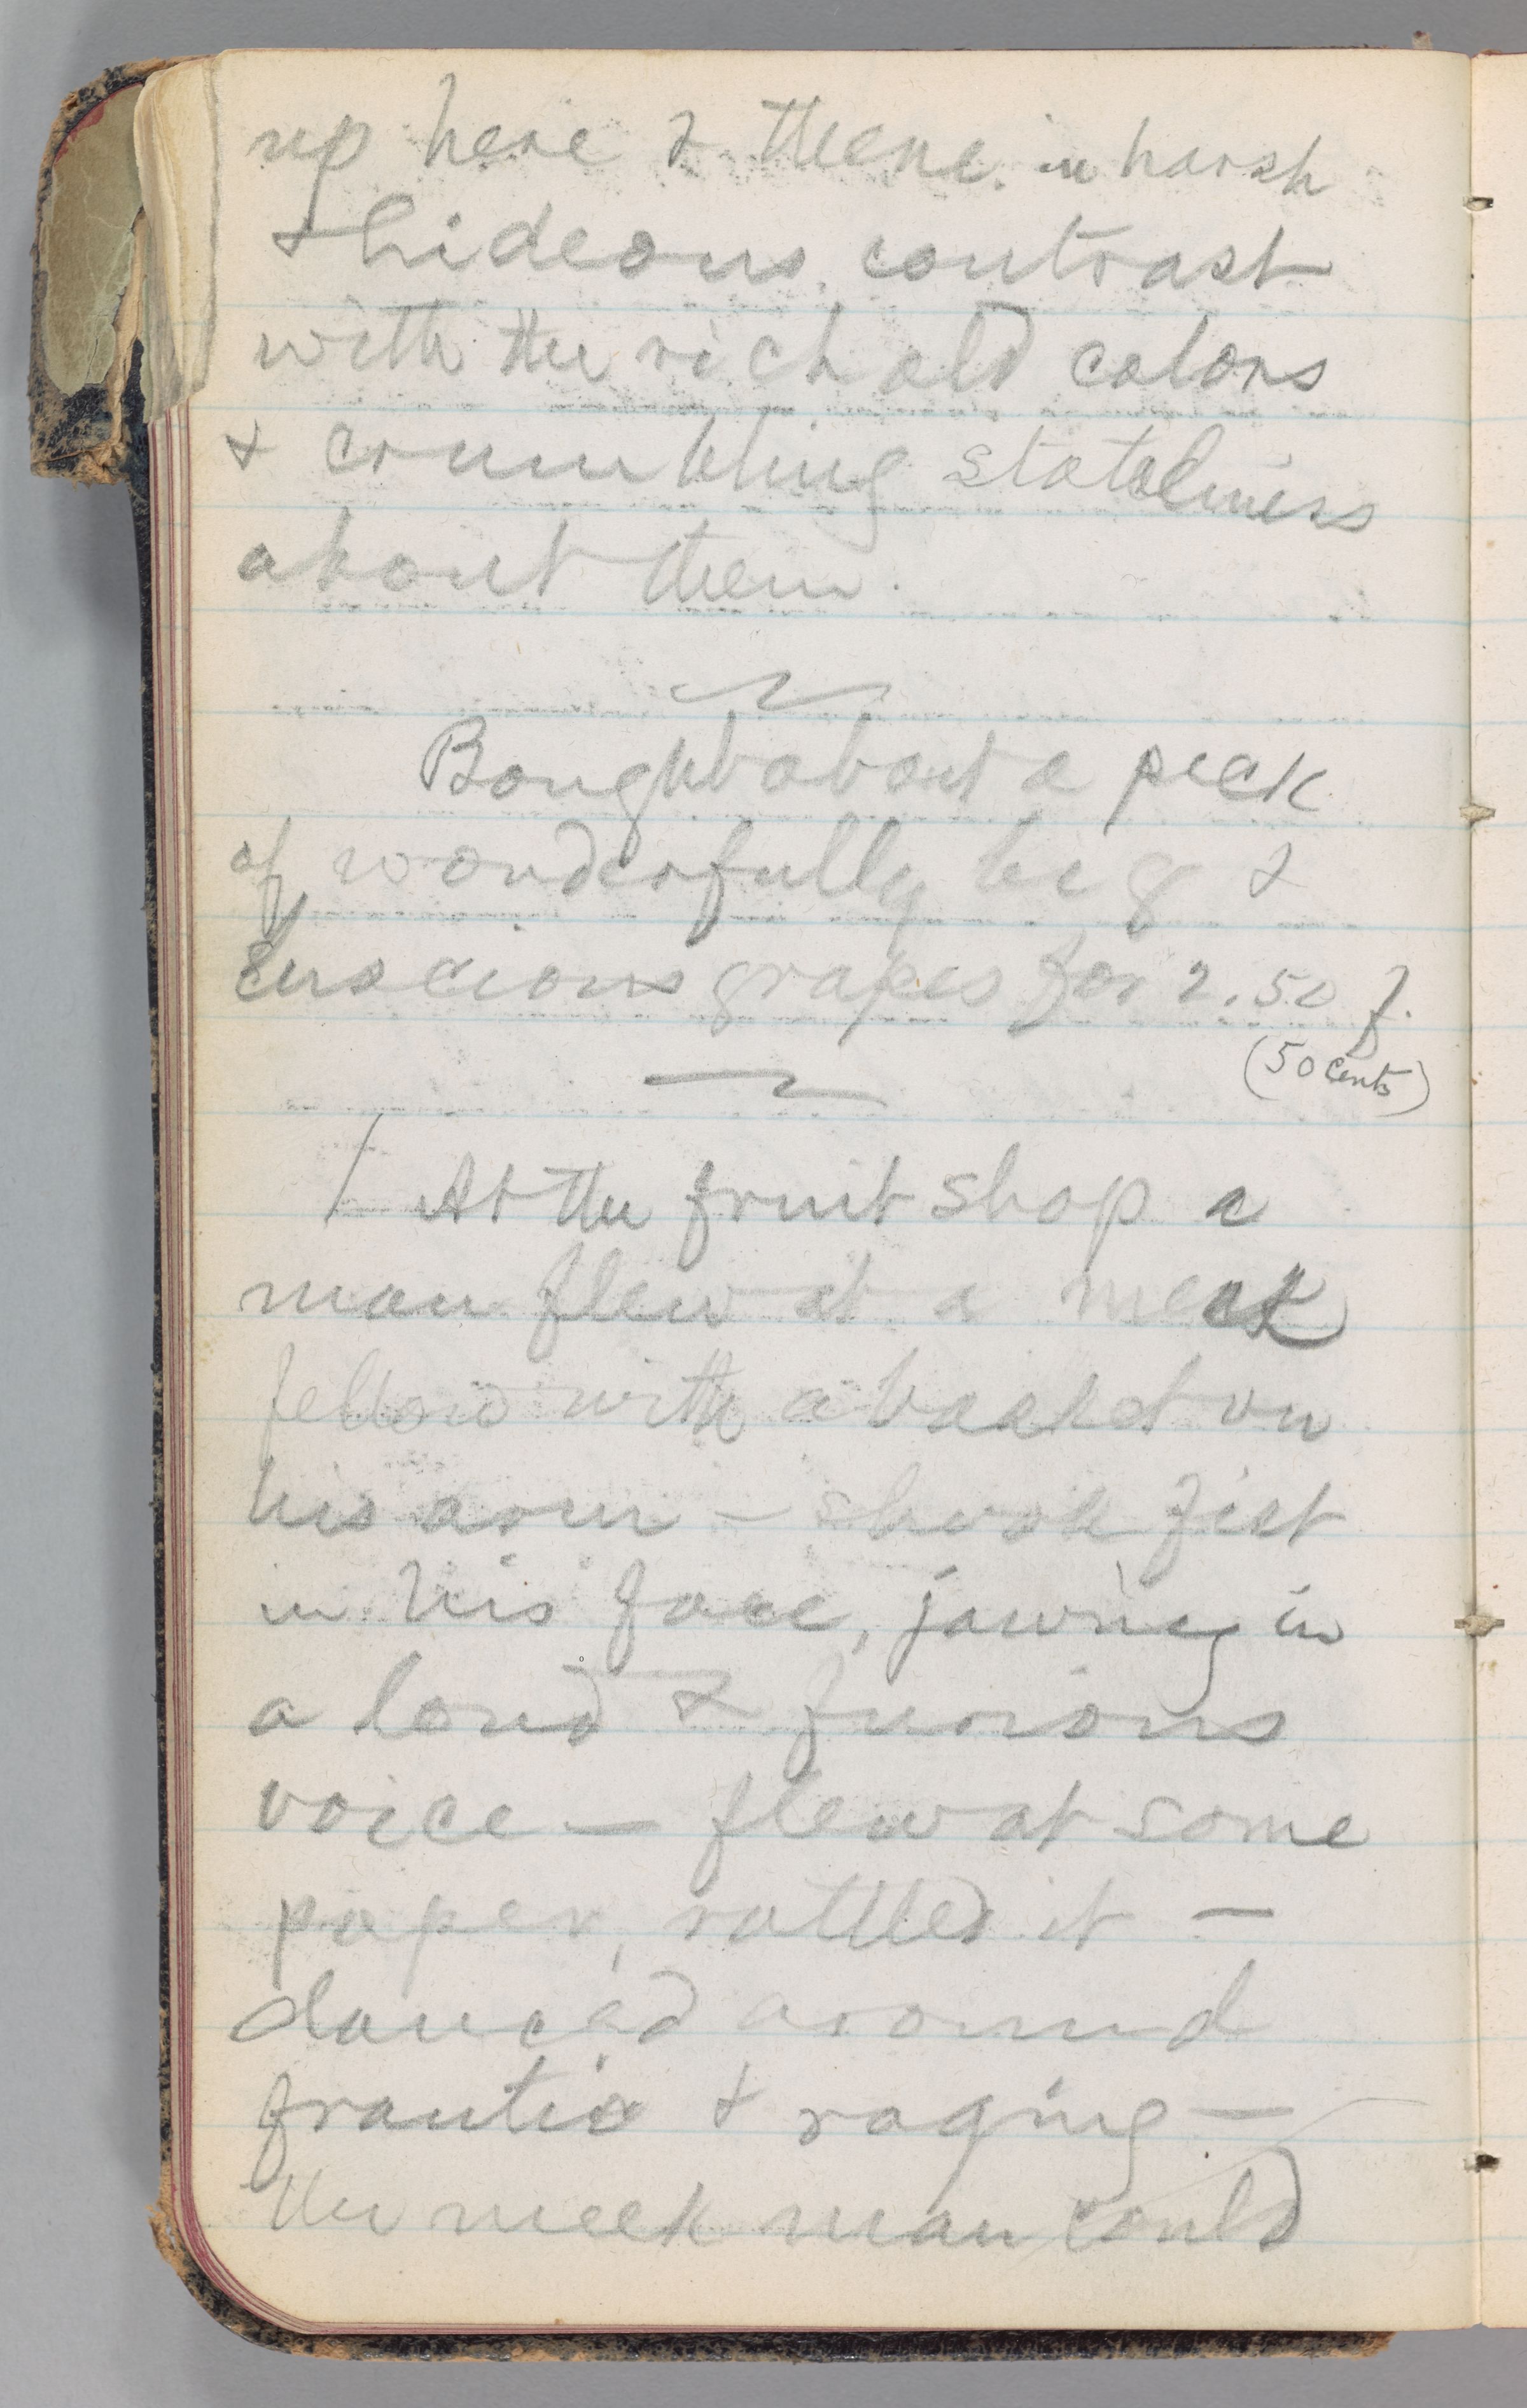 up here & there. in harsh
& hideous contrast
with the rich old colors
& crumbling stateliness
about them.
Bought about a peck
of wonderfully big &
luscious grapes for 2.50 f.
(50 cents)
/ At the fruit shop a
man flew at a meek
fellow with a basket on
his arm — shook fist
in his face, jawing in
a loud & furious
voice — flew at some
paper, rattled it —
danced around
frantic & raging —
the meek man could